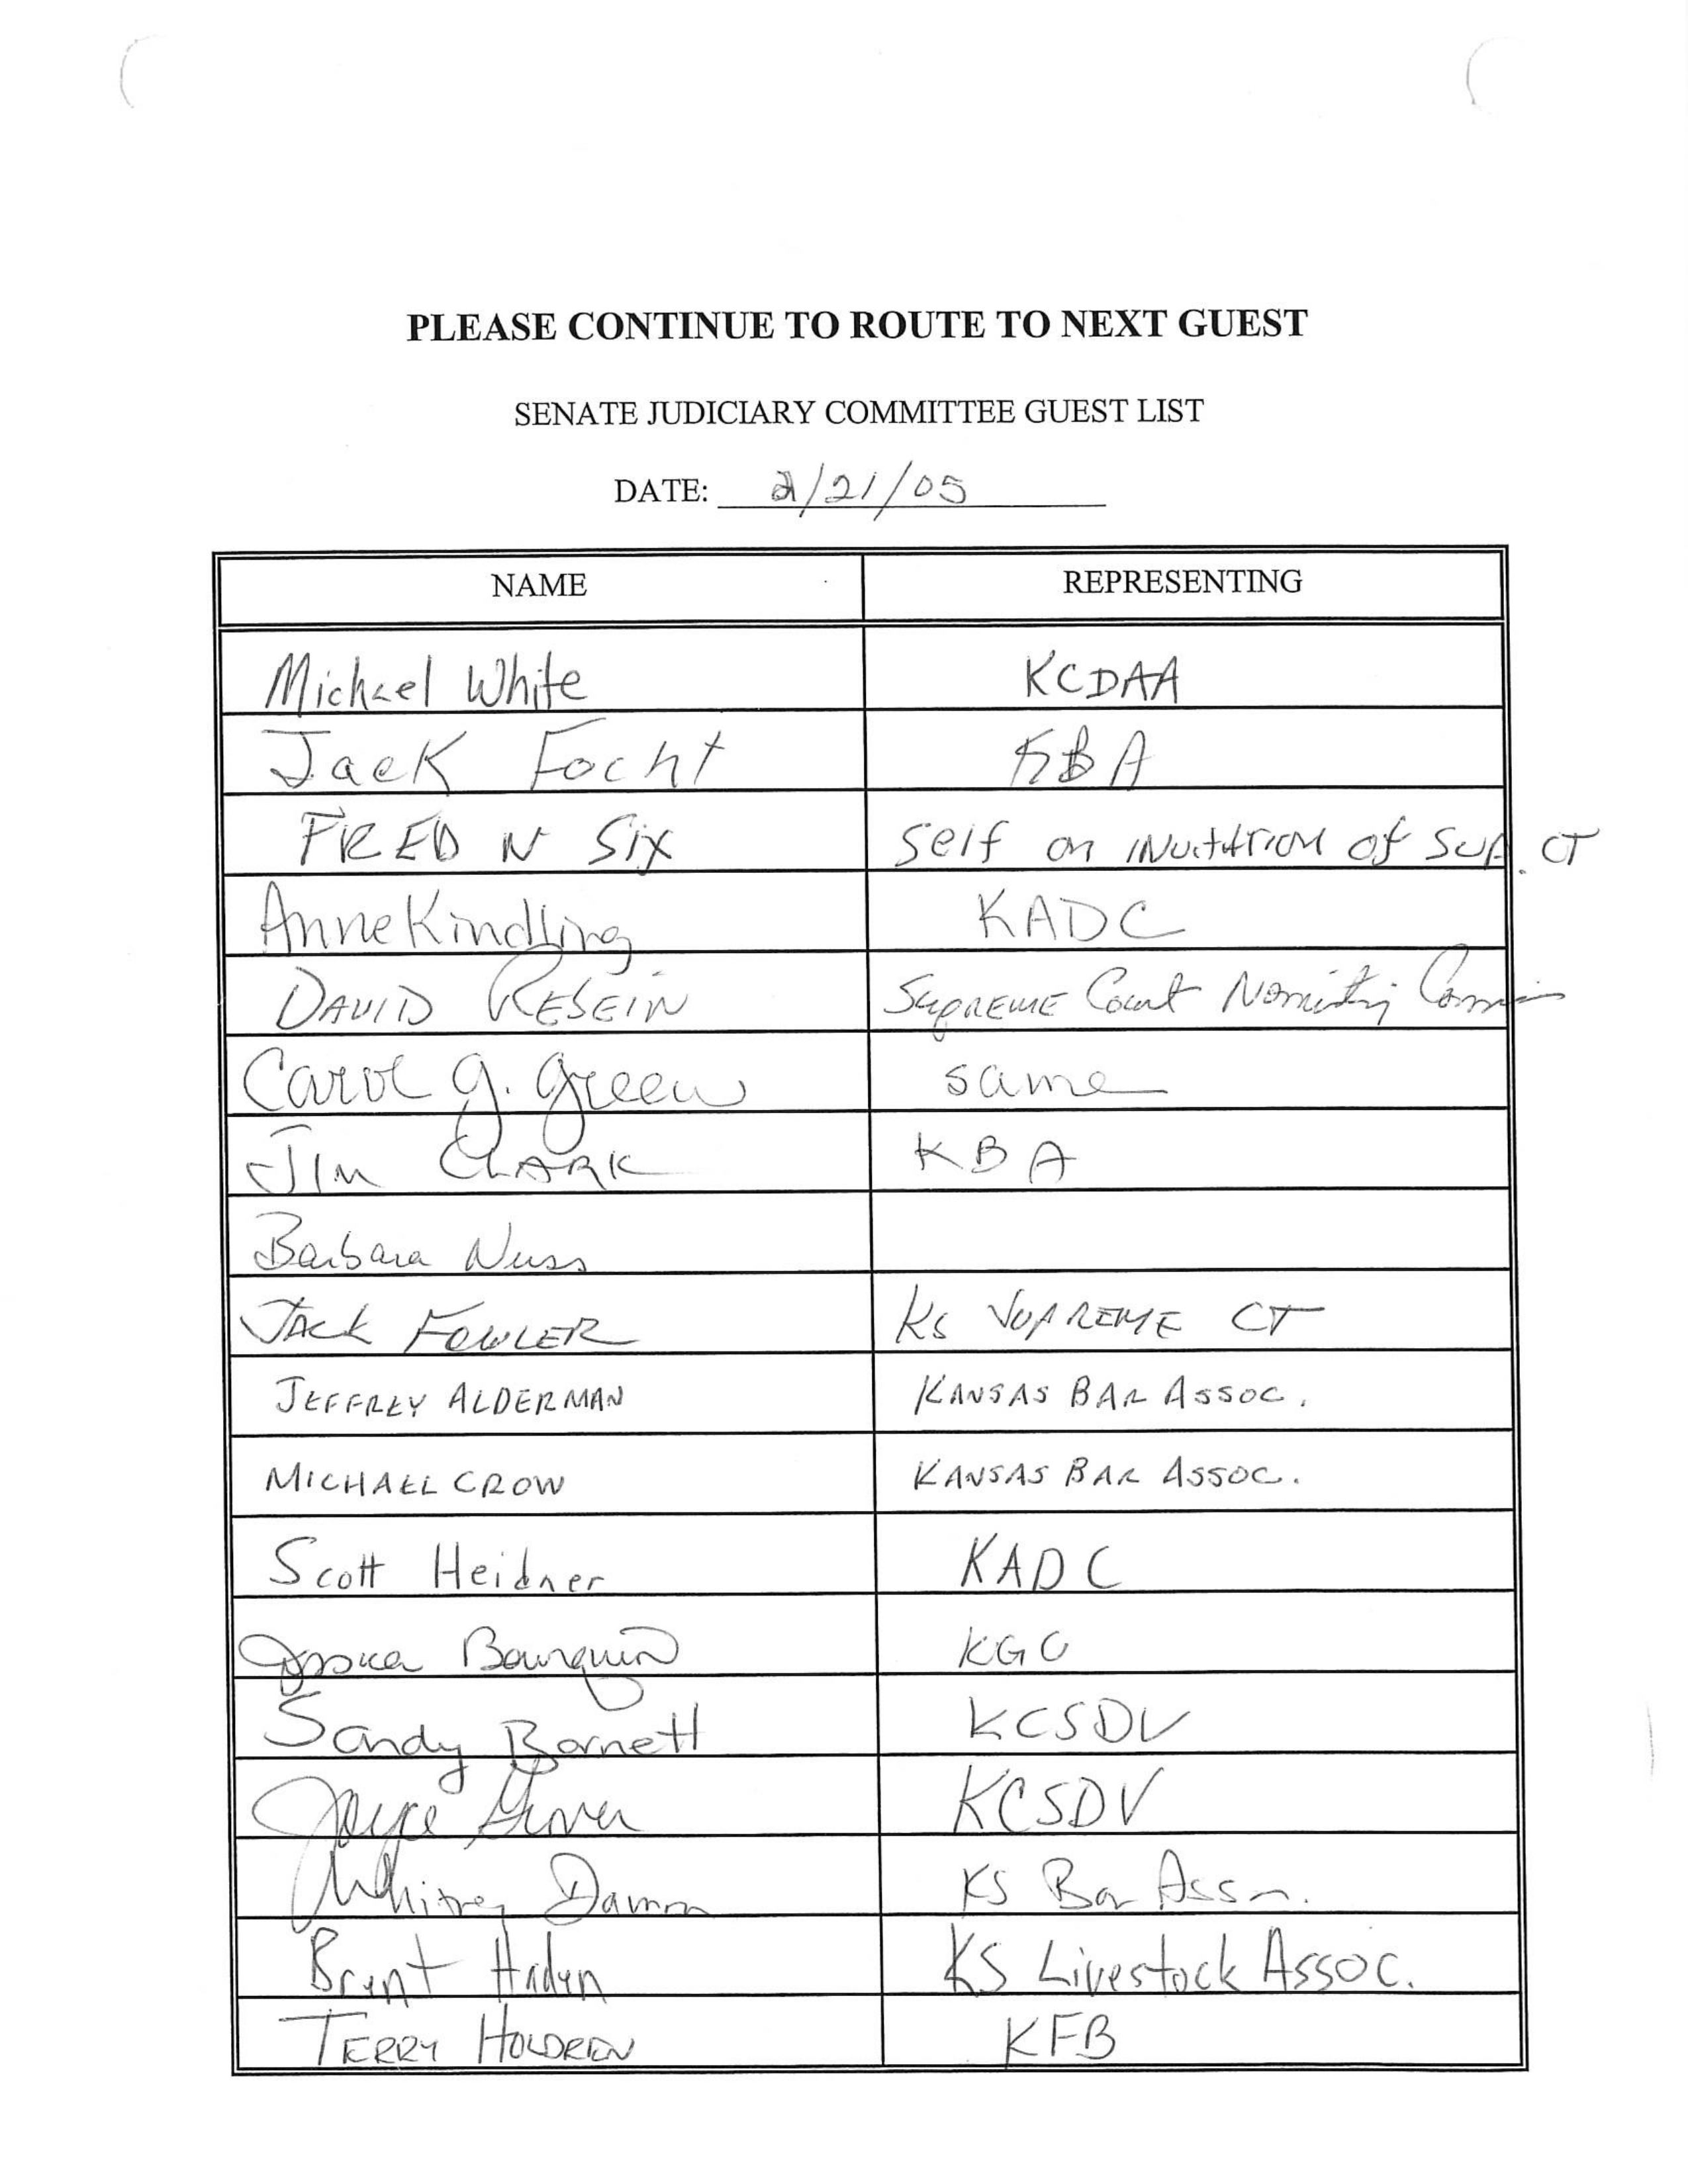 PLEASE CONTINUE TO ROUTE TO NEXT GUEST
SENATE JUDICIARY COMMITTEE GUEST LIST
DATE: 2/21/05
NAME REPRESENTING
Michael White KCDAA
Jack Focht KBA
FRED N Six self on INVITATION of SUP. CT
Anne Kindling KADC
DAVID SUPREME Court
Carol G. Green same
JIM CLARK KBA
Barbara Nuss
JACK FOWLER KS SUPREME CT
JEFFREY ALDERMAN KANSAS BAR ASSOC.
MICHAEL CROW KANSAS BAR ASSOC.
Scott Heidner KADC
Jessica Bourquin
Sandy Barnett KCSDV
Joyce Grover KCSDV
Whitney Damron KS Bar Assn.
Brent Haden KS Livestock Assoc.
TERRY HOLDREN KFB